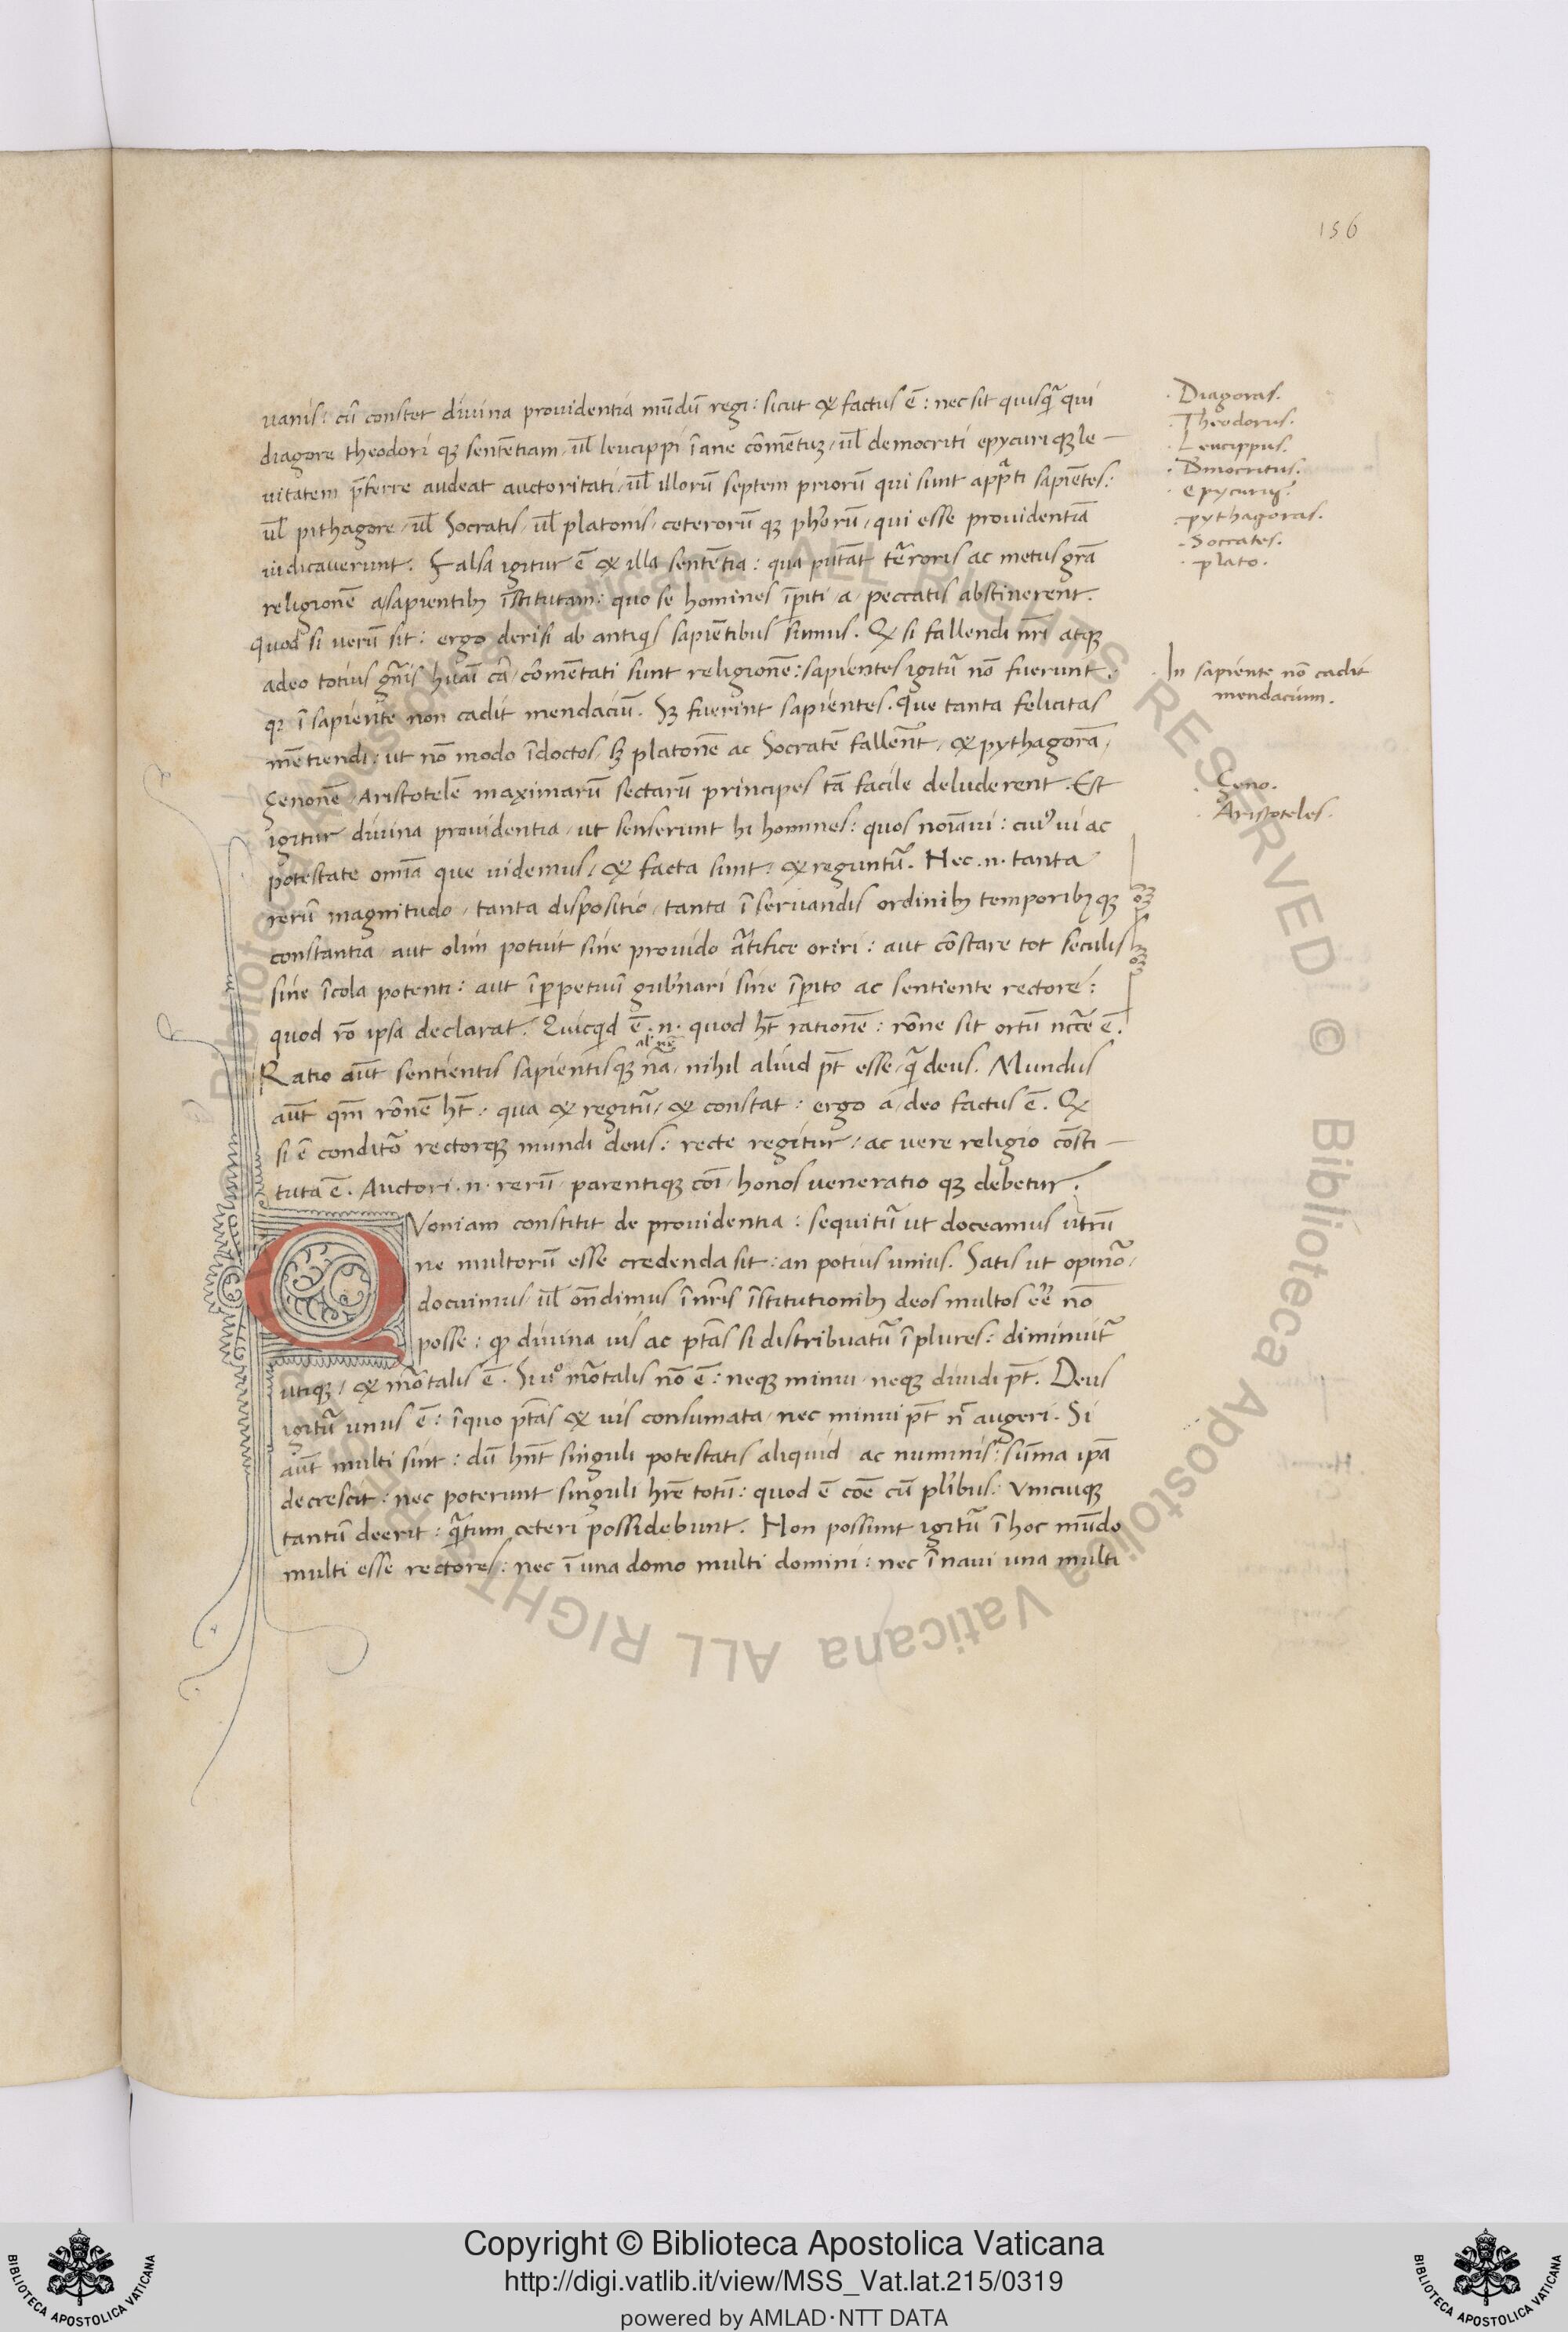 156
vanis: cū constet divina providentia mūdū regi: sicut & factus ē: nec sit quisq̃ qui
diagore theodori qȝ sentētiam, ul̄ leucippi īane cōmētuȝ, ul̄ democriti epycuri qȝ le-
vitatem p̄ferre audeat auctoritati, ul̄ illorū septem priorū qui sunt app̃ti sapiētes:
ul̄ pithagore, ul̄ Socratis, ul̄ platonis, ceterorū qȝ ph̄orū, qui esse providentiā
iudicaverunt. Falsa igitur ē & illa sentētia: qua putāt tẽroris ac metus gr̄a
religionē a sapientibȝ īstitutam: quo se homines īpiti a peccatis abstinerent.
Quod si verū sit: ergo derisi ab antiqis sapiētibus sumus. & si fallendi nr̄i atqȝ
adeo totius gn̄is huāi cā, cōmētati sunt religionē: sapientes igitũ nō fuerunt:
qȝ ī sapiente non cadit mendaciū. Sȝ fuerint sapientes. Que tanta felicitas
mētiendi: ut nō modo īdoctos, sȝ platonē ac Socratē fallent̄, & pythagorā,
Zenonē Aristotelē maximarū sectarū principes tā facile deluderent. Est
igitur divina providentia, ut senserunt hi homines: quos noīavi: cuiꝰ vi ac
potestate omīa que videmus, & facta sunt, & reguntũ. Nec .n. tanta
rerū magnitudo, tanta dispositio, tanta ī servandis ordinibȝ temporibȝqȝ
constantia, aut olim potuit sine provido ãtifice oriri: aut cōstare tot seculis
sine īcola potenti: aut ī ppetuū gub̄nari sine īpito ac sentiente rectore:
quod rō ipsa declarat. Quicqd ē .n. quod h̄t rationē: rōne sit ortū nc̄ce ē.
Ratio aūt sentientis sapientisqȝ nā, nihil aliud pt̄ esse, q̃ deus. Mundus
aūt qm̄ rōnē h̄t: qua & regitũ, & constat: ergo a deo factus ē. &
si ē conditõ rectorqȝ mundi deus: recte regitur, ac vere religio cōsti-
tuta ē. Auctori .n. rerū, parentiqȝ coī, honos veneratio qȝ debetur.
Quoniam constitit de providentia: sequitũ ut doceamus utrū
ne multorū esse credenda sit: an potius unius. Satis ut opinõ,
docuimus, ul̄ on̄dimus ī nr̄is īstitutionibȝ deos multos ee̅ nō
posse: qȝ divina vis ac ptās si distribuatũ ī plures: diminuit̃
utiqȝ, & mõtalis ē. Si vº mõtalis nō ē: neqȝ minui, neqȝ dividi pt̄. Deus
igitũ unus ē: ī quo ptās & vis consumata, nec minui pt̄ n̄ augeri. Si
aūt multi sint: dū hn̄t singuli potestatis aliquid ac numinis: sūma ipā
decrescit: nec poterunt singuli hr̄e totū: quod ē coē cū pl̄ibus: Vnicuiqȝ
tantū deerit: q̃tum ceteri possidebunt. Non possunt igitũ ī hoc mūdo
multi esse rectores: nec ī una domo multi domini: nec ī navi una multi
· Diagoras.
· Theodorus.
· Leucippus.
· Dmocritus.
· epycurꝰ.
· pythagoras.
· Soccrates.
· plato.
· In sapiente nō cadit
mendacium.
· Zeno.
· Aristoteles.
Copyright © Biblioteca Apostolica Vaticana
http://digi.vatlib.it/view/MSS_Vat.lat.215/0319
powered by AMLAD·NTT DATA
BIBLIOTECA APOSTOLICA VATICANA
BIBLIOTECA APOSTOLICA VATICANA
Biblioteca Apostolica Vaticana ALL RIGHTS RESERVED ©